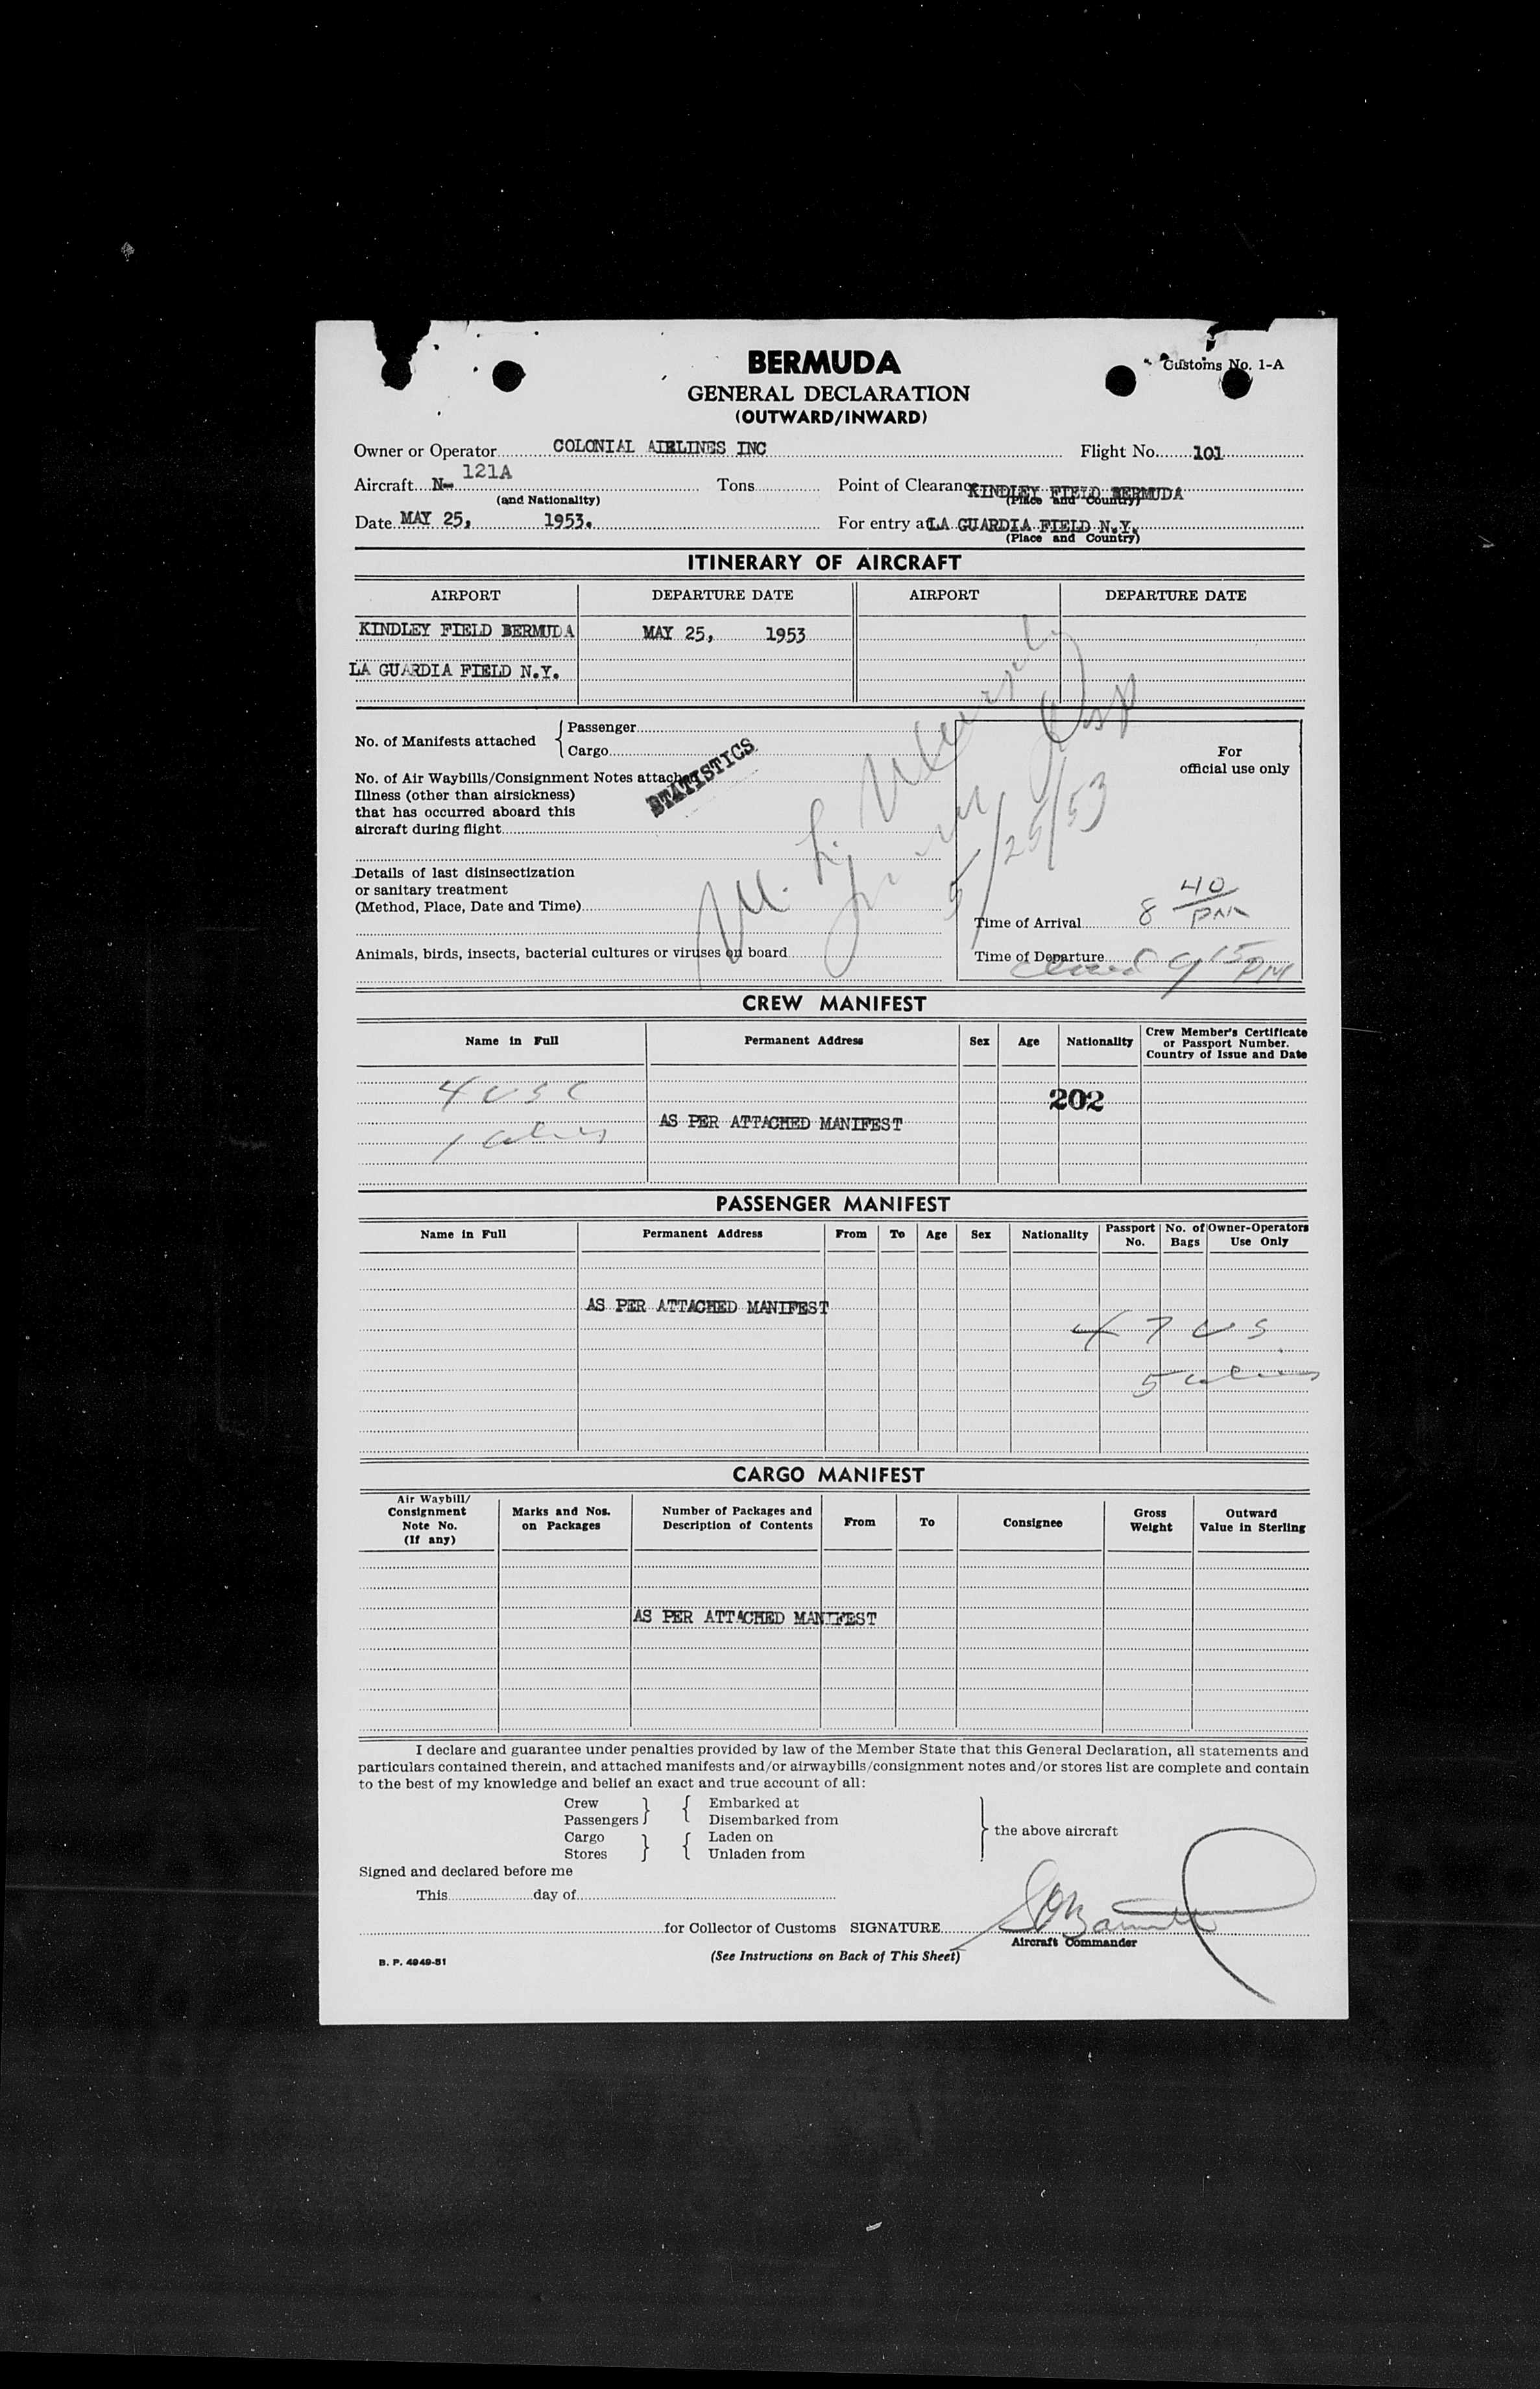 BERMUDA
Customs No. 1-A
GENERAL DECLARATION
(OUTWARD/INWARD)
Owner or Operator COLONIAL AIRLINES INC Flight No. 101
Aircraft N- 121A Tons Point of Clearance KINDLEY FIELD BERMUDA
(and Nationality) (Place and Country)
Date MAY 25, 1953. For entry at LA GUARDIA FIELD N.Y.
(Place and Country)
ITINERARY OF AIRCRAFT
AIRPORT DEPARTURE DATE AIRPORT DEPARTURE DATE
KINDLEY FIELD BERMUDA MAY 25, 1953
LA GUARDIA FIELD N.Y.
No. of Manifests attached { Passenger
Cargo
For
official use only
STATISTICS
No. of Air Waybills/Consignment Notes attached
Illness (other than airsickness)
that has occurred aboard this
aircraft during flight
5/25/53
Details of last disinsectization
or sanitary treatment
(Method, Place, Date and Time)
Time of Arrival 8 40 PM
Animals, birds, insects, bacterial cultures or viruses on board
Time of Departure 9 15 PM
CREW MANIFEST
Name in Full Permanent Address Sex Age Nationality Crew Member's Certificate
or Passport Number.
Country of Issue and Date
4 USC
202
AS PER ATTACHED MANIFEST
1 alien
PASSENGER MANIFEST
Name in Full Permanent Address From To Age Sex Nationality Passport No. No. of Bags Owner-Operators Use Only
AS PER ATTACHED MANIFEST
47 US
5 aliens
CARGO MANIFEST
Air Waybill/
Consignment
Note No.
(If any)
Marks and Nos.
on Packages
Number of Packages and
Description of Contents
From To Consignee
Gross
Weight
Outward
Value in Sterling
AS PER ATTACHED MANIFEST
I declare and guarantee under penalties provided by law of the Member State that this General Declaration, all statements and
particulars contained therein, and attached manifests and/or airwaybills/consignment notes and/or stores list are complete and contain
to the best of my knowledge and belief an exact and true account of all:
Crew } { Embarked at
Passengers } { Disembarked from
Cargo } { Laden on
Stores } { Unladen from
} the above aircraft
Signed and declared before me
This day of
for Collector of Customs SIGNATURE
Aircraft Commander
(See Instructions on Back of This Sheet)
B. P. 4949-51